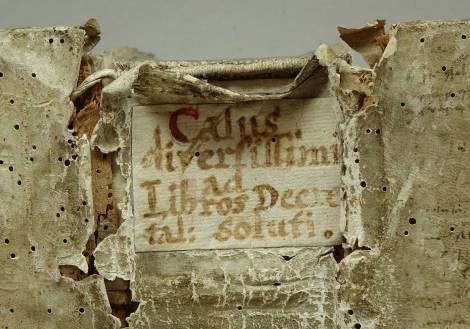 Casus
diversissimi
Ad
Libros Decre
tal: soluti.